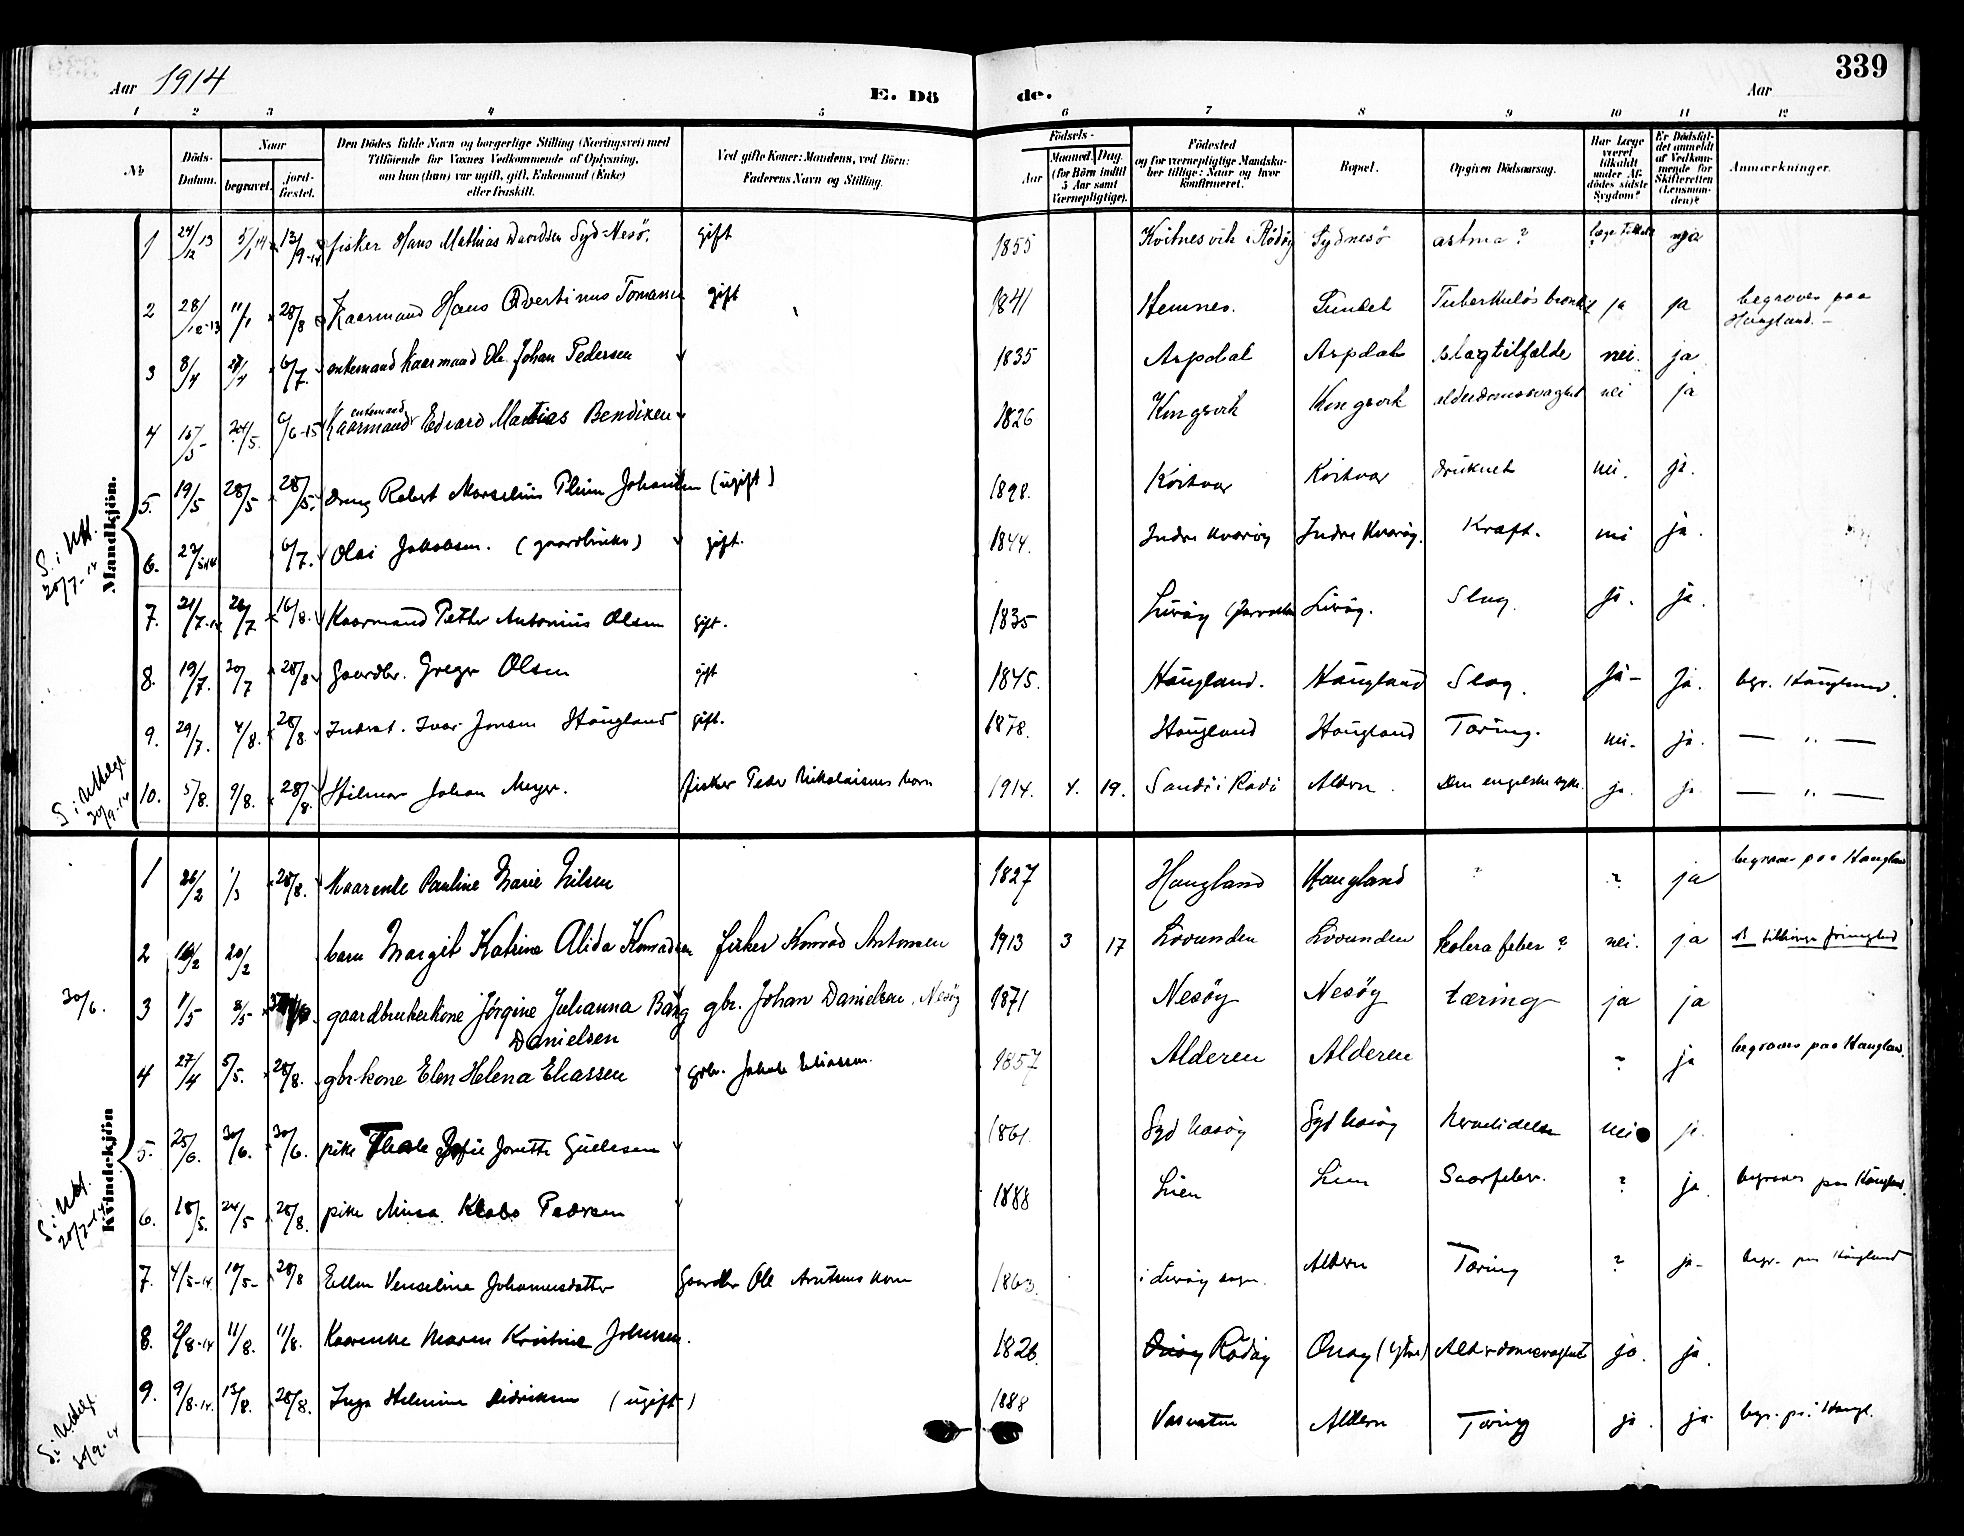 Aar 1914
E. Dö
de.
Aar
339
1 2 3 4 5 6 7 8 9 10 11 12
No
Döds-Datum.
Naar
begravet.
jord-fæstet.
Den Dödes fulde Navn og borgerlige Stilling (Næringsvei) med
Tilföiende for Voxnes Vedkommende af Oplysning,
om han (hun) var ugift, gift, Enkemand (Enke)
eller fraskilt.
Ved gifte Koner: Mandens, ved Börn:
Faderens Navn og Stilling.
Födsels-
Aar
Maaned. Dag.
(for Börn indtil
5 Aar samt
Værnepligtige).
Födested
og for værnepligtige Mandska-
ber tillige: Naar og hvor
konfirmeret.
Bopæl.
Opgiven Dödsaarsag.
Har Læge
været
tilkaldt
under Af-
dödes sidste
Sygdom?
Er Dödsfal-
det anmeldt
af Vedkom-
mende for
Skifteretten
(Lensman-
den)?
Anmærkninger.
Mandkjön.
1 24/12 13 5/1 14 13/9-14 fisker Hans Mathias Davidsen Syd-Nesö. gift 1855 Kvitnesvik i Rödöy Sydnesö astma? ja
2 28/12-13 11/1 28/8 Kaarmand Hans Edvertinus Tomassen gift 1841 Hemnes. Sundet Tuberkuløs bronk. ja ja begraves paa
Haugland.
3 8/4 6/7. enkemand kaarmand Ole Johan Pedersen 1835 Aspdal Aspdal slagtilfælde nei. ja
enkemand
4 15/5 24/5. 6/6-15 Kaarmand Edvard Mathias Bendixen 1826 Kongsvik Kongsvik alderdomssvaghet nei ja
5. 19/5 28/5 28/5. Dreng Robert Marselius Plein Johansen (ugift) 1898. Kvitvar Kvitvar druknet nei. ja.
6. 6/7. Olai Jakobsen. (gaardbruker) gift. 1844. Indre Kvarøy Indre Kvarøy. Kræft. nei ja.
7. 21/7-14 26/7 16/8. Kaarmand Petter Antonius Olsen gift. 1835 Lurøy Lurøy. Slag. ja. ja.
8. 19/7. 20/7 28/8 Gaardbr. Greger Olsen gift 1845. Haugland. Haugland Slag. Ja- Ja. begr. Haugland.
9. 29/7. 4/8. 28/8. Inderst. Ivar Jensen Haugland gift. 1878. Haugland Haugland Tæring. nei. ja. — „ —
10. 5/8. 9/8. 28/8. Hilmar Johan Meyer. fisker Peder Nikolaisens barn 1914. 4. 19. Aldern Den engelske syke. ja. ja. — „ —
Kvindekjön
1 26/2 1/3 28/8. kaarenke Pauline Marie Nilsen 1827 Haugland Haugland ? ? ja begraves paa Haugland
2 16/2 20/2 barn Margit Katrine Alida Konradsen fisker Konrad Antonsen 1913 3 17 Lovunden Lovunden kolerafeber? nei. ja
3 1/5 8/5 gaardbrukerkone Jörgine Julianna Bang gbr. Johan Danielsen, Nesöy 1871 Nesöy Nesöy tæring ja ja
Danielsen
4 27/4 5/5. 28/8. gbr.kone Elen Helena Eliassen gbr. Jakob Eliassen. 1857 Alderen Alderen ? ja begraves paa Haugland.
5. 25/6. 30/6. 30/6. pike Thale Sofie Jonette 1861. Syd Nesöy Syd Nesöy nei ja.
6. 18/5. 24/5 28/8. pike Minsa Pedersen 1888 Lien Lien ? ja. begraves paa Haugland.
7. 4/5-14. 10/5- 28/8 Ellen Venseline Johannesdatter Gaardbr Ole Arntsens kone 1863. i Lurøy sogn. Aldern Tæring ? ja- begr. paa Haugland
8. 2/8-14 11/8. 11/8. Kaarenke Maren Kristine Johnsen. 1826. Rödöy Onøy (Ytre) Alderdomssvaghet ja. ja.
9. 9/8-14. 13/8. 28/8. Inga Helmine Didriksen (ugift) 1888 Aldern Tæring ja. ja. begr. på Haugl.
20/7-14
20/9-14
30/6.
20/7-14
20/9-14